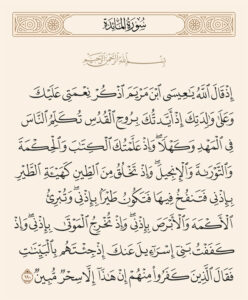 سُورَةُ المَائِدَة
بِسْمِ اللَّهِ الرَّحْمَٰنِ الرَّحِيمِ
إِذْ قَالَ ٱللَّهُ يَٰعِيسَى ٱبْنَ مَرْيَمَ ٱذْكُرْ نِعْمَتِى عَلَيْكَ
وَعَلَىٰ وَٰلِدَتِكَ إِذْ أَيَّدتُّكَ بِرُوحِ ٱلْقُدُسِ تُكَلِّمُ ٱلنَّاسَ
فِى ٱلْمَهْدِ وَكَهْلًا ۖ وَإِذْ عَلَّمْتُكَ ٱلْكِتَٰبَ وَٱلْحِكْمَةَ
وَٱلتَّوْرَىٰةَ وَٱلْإِنجِيلَ ۖ وَإِذْ تَخْلُقُ مِنَ ٱلطِّينِ كَهَيْـَٔةِ ٱلطَّيْرِ
بِإِذْنِى فَتَنفُخُ فِيهَا فَتَكُونُ طَيْرًۢا بِإِذْنِى ۖ وَتُبْرِئُ
ٱلْأَكْمَهَ وَٱلْأَبْرَصَ بِإِذْنِى ۖ وَإِذْ تُخْرِجُ ٱلْمَوْتَىٰ بِإِذْنِى ۖ وَإِذْ
كَفَفْتُ بَنِىٓ إِسْرَٰٓءِيلَ عَنكَ إِذْ جِئْتَهُم بِٱلْبَيِّنَٰتِ
فَقَالَ ٱلَّذِينَ كَفَرُوا۟ مِنْهُمْ إِنْ هَٰذَآ إِلَّا سِحْرٌ مُّبِينٌ ١١٠